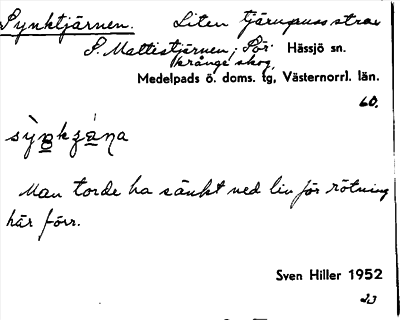 Synktjärnen. Liten tjärnpuss strax
S. Mattistjärnen, För Hässjö sn.
krånge skog,
Medelpads ö. doms. tg, Västernorrl. län.
60.
Man torde ha sänkt ned lin för rötning
här förr.
Sven Hiller 1952